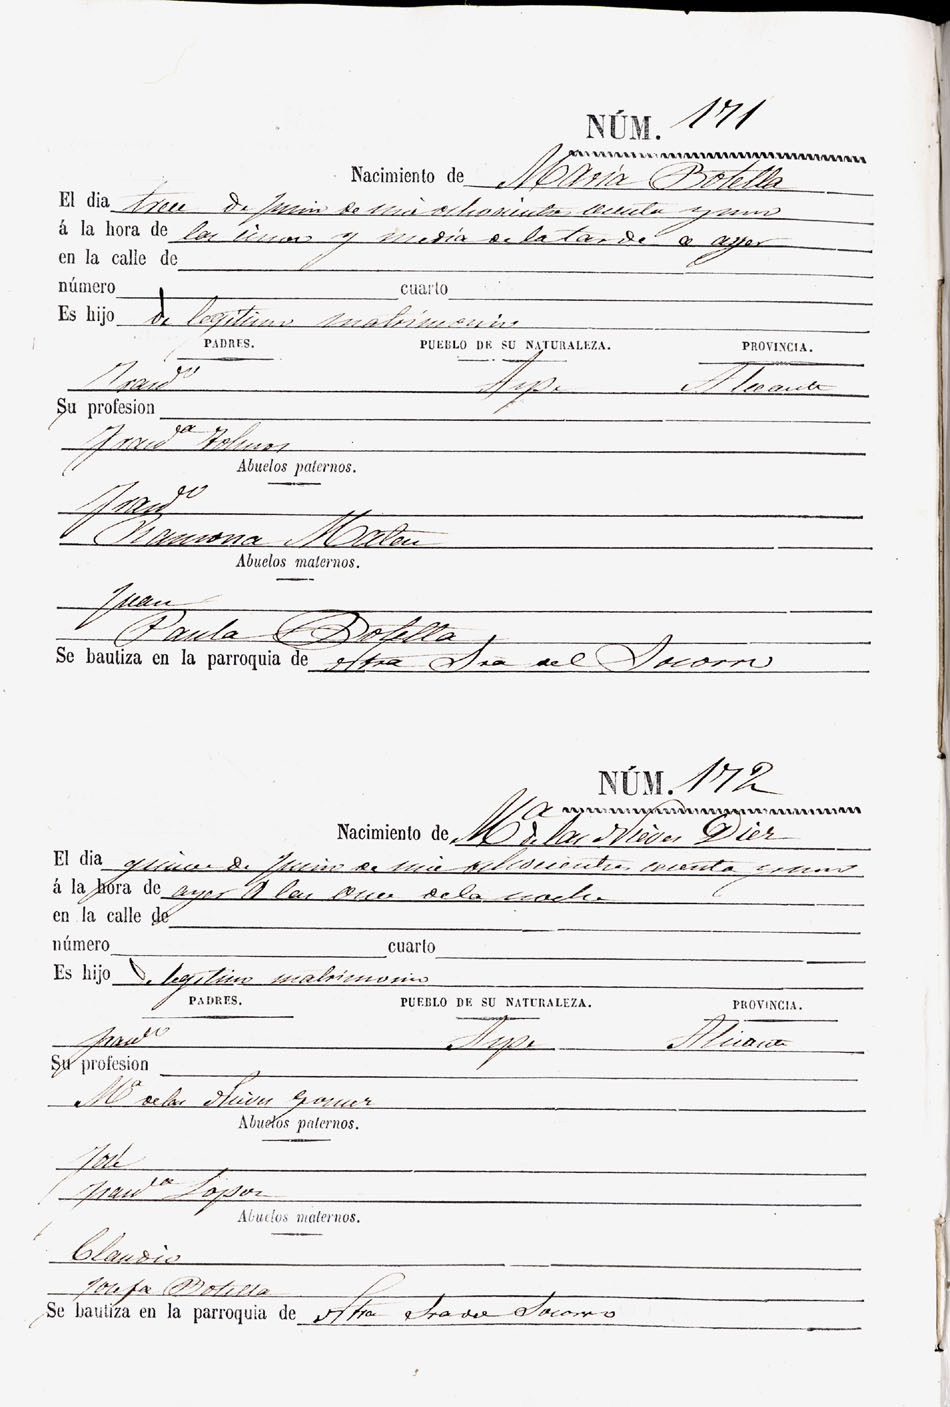 NÚM. 171
Nacimiento de María Botella
El dia trece de Junio de mil ochocientos cuenta y uno
á la hora de las cinco y media de la tarde a ayer
en la calle de
número cuarto
Es hijo de legitimo matrimonio
PADRES. PUEBLO DE SU NATURALEZA. PROVINCIA.
Franco Aspe Alicante
Su profesion
Franca
Abuelos paternos.
Franco
Ramona Mateu
Abuelos maternos.
Juan
Paula Botella
Se bautiza en la parroquia de Ntra Sra del Socorro
NÚM. 172
Nacimiento de Ma de las Nieves Dier
El dia quince de Junio de mil ochocientos cuenta y uno
á la hora de ayer a las once de la noche
en la calle de
número cuarto
Es hijo de legitimo matrimonio
PADRES. PUEBLO DE SU NATURALEZA. PROVINCIA.
Franco Aspe Alicante
Su profesion
Ma de las Nieves Gomez
Abuelos paternos.
José
Franca Lopez
Abuelos maternos.
Claudio
Josefa Botella
Se bautiza en la parroquia de Ntra Sra del Socorro